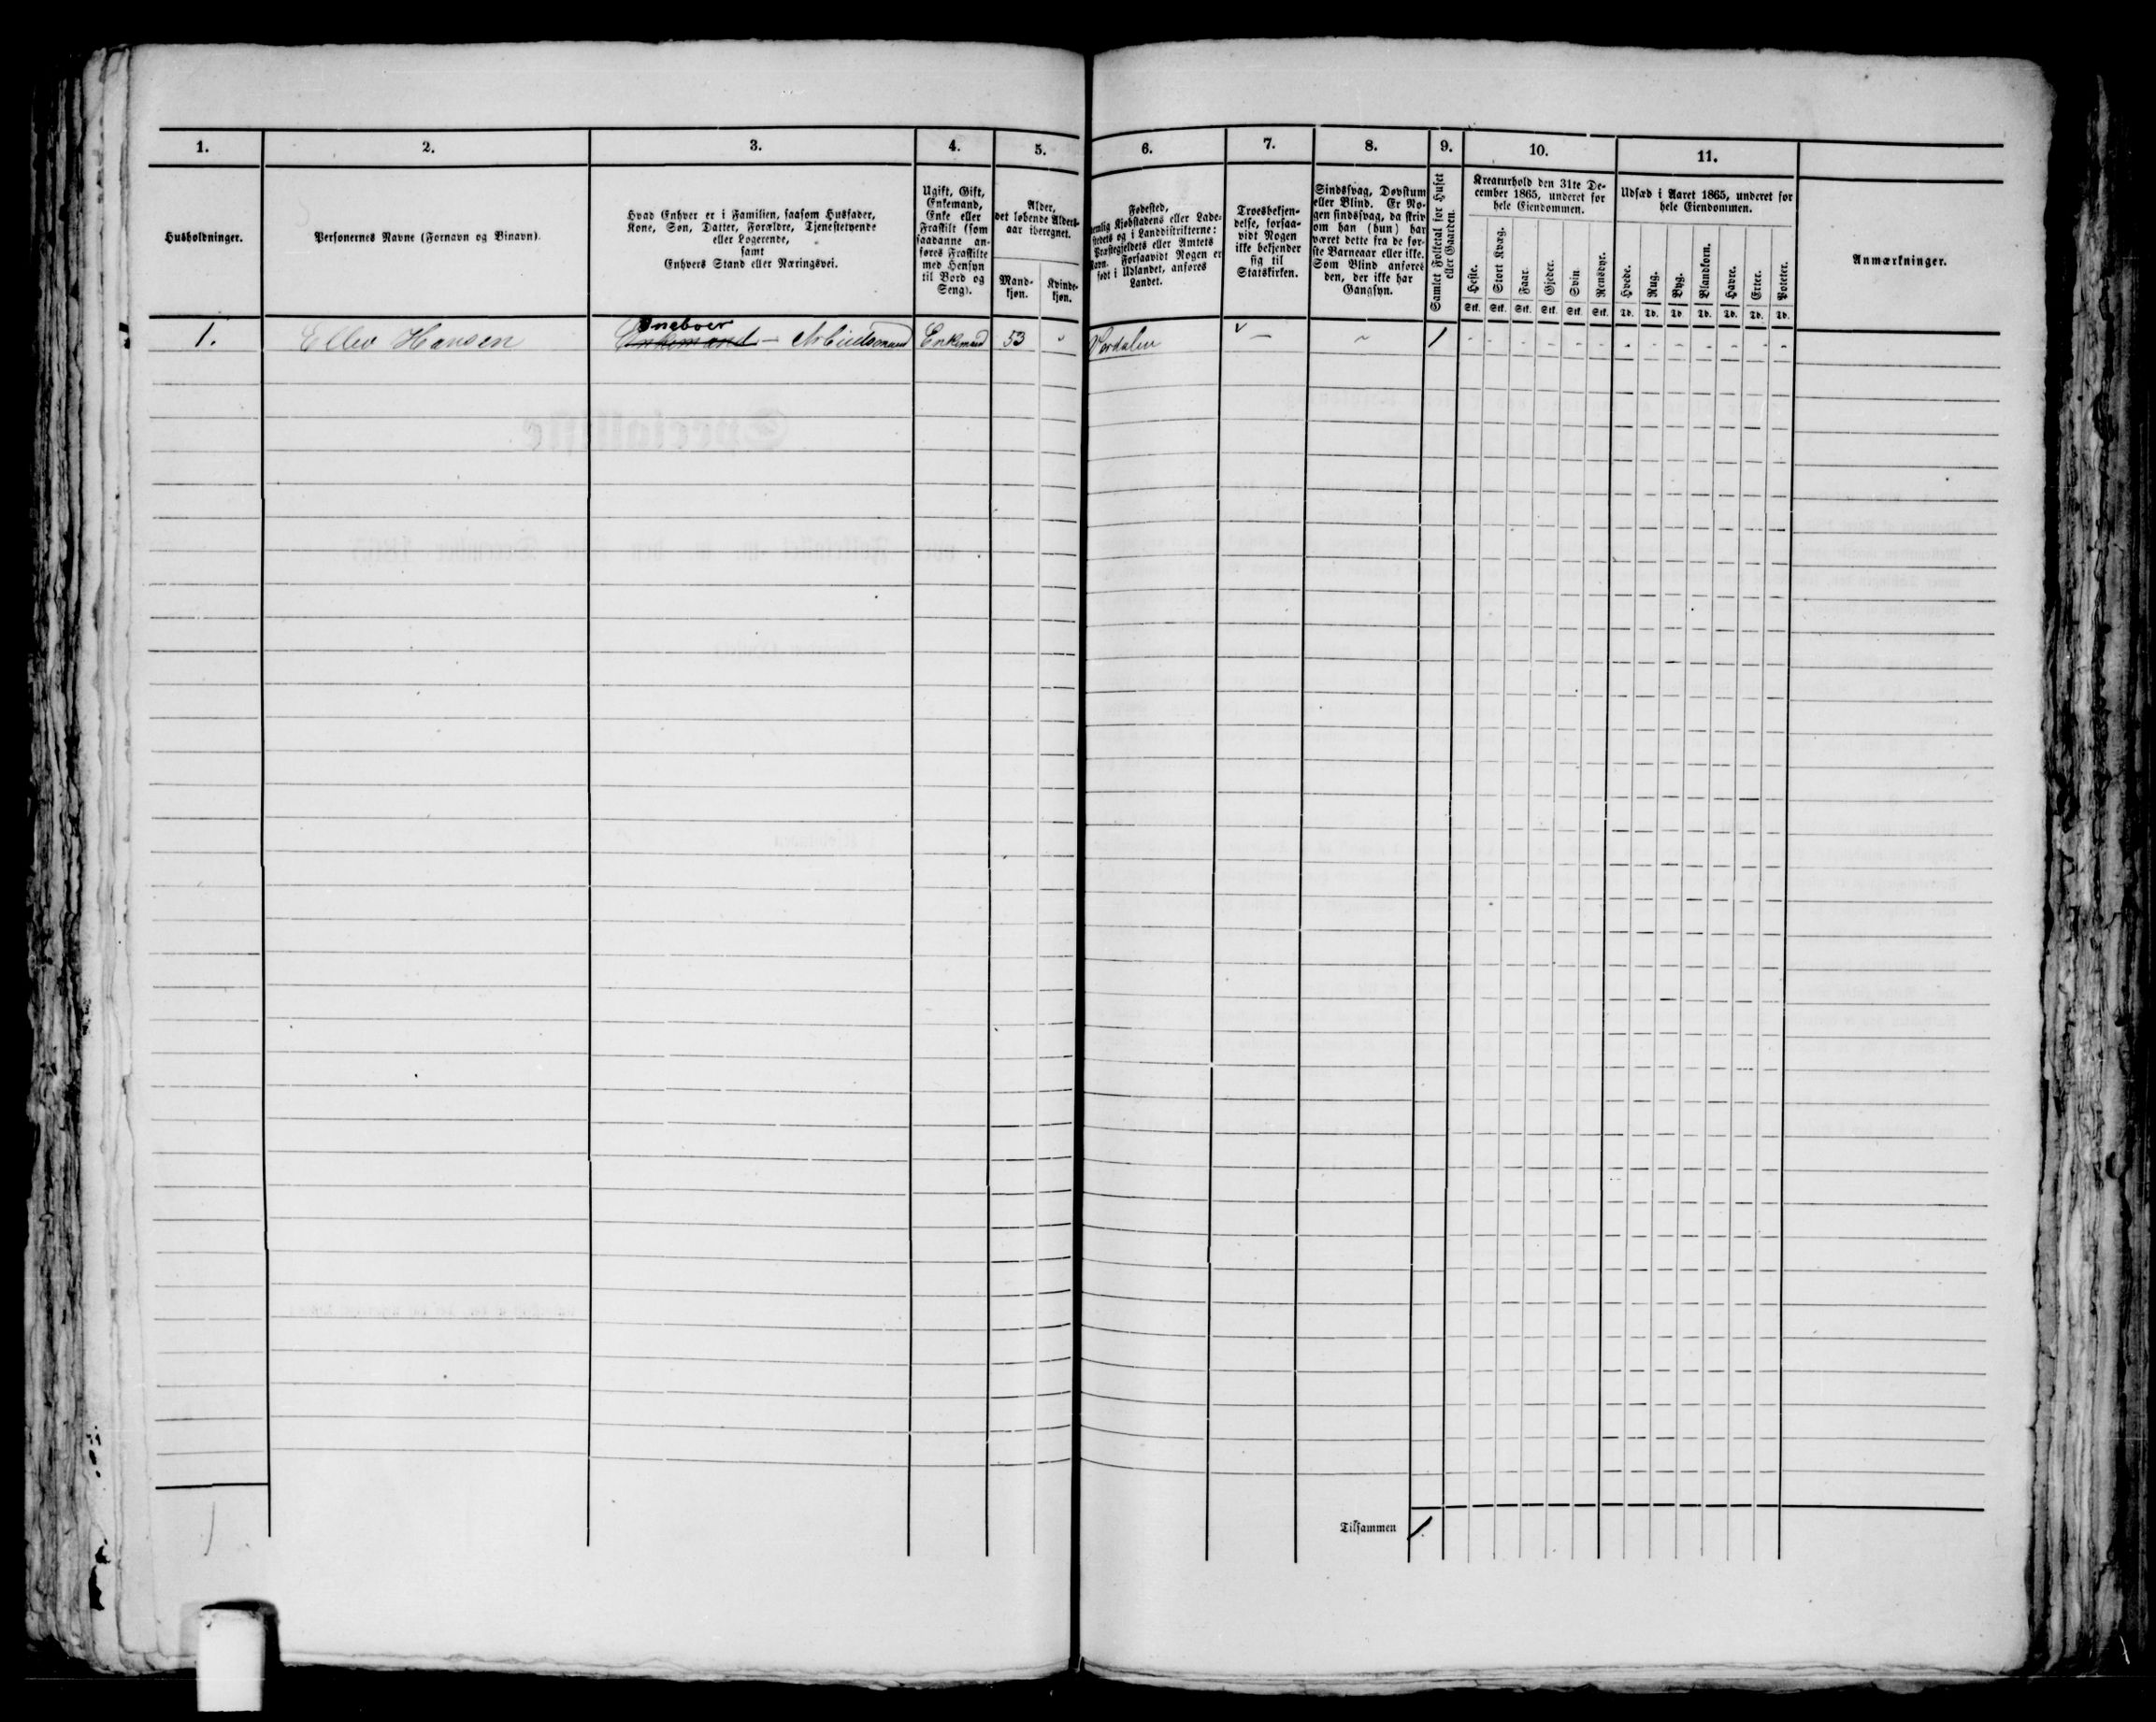 1. 2. 3. 4. 5. 6. 7. 8. 9. 10. 11.
Husholdninger.
Personernes Navne (Fornavn og Binavn).
Hvad Enhver er i Familien, saasom Husfader,
Kone, Søn, Datter, Forældre, Tjenestetyende
eller Logerende,
samt
Enhvers Stand eller Næringsvei.
Ugift, Gift,
Enkemand,
Enke eller
Fraskilt (som
saadanne an-
føres Fraskilte
med Hensyn
til Bord og
Seng).
Alder,
det løbende Alders-
aar iberegnet.
Mand-
kjøn.
Kvinde-
kjøn.
Fødested,
nemlig Kjøbstadens eller Lade-
stedets og i Landdistrikterne:
Præstegjeldets eller Amtets
Navn. Forsaavidt Nogen er
født i Udlandet, anføres
Landet.
Troesbekjen-
delse, forsaa-
vidt Nogen
ikke bekjender
sig til
Statskirken.
Sindssvag, Døvstum
eller Blind. Er No-
gen sindssvag, da skriv
om han (hun) har
været dette fra de før-
ste Barneaar eller ikke.
Som Blind anføres
den, der ikke har
Gangsyn.
Samlet Folketal for Huset
eller Gaarden.
Kreaturhold den 31te De-
cember 1865, underet for
hele Eiendommen.
Heste. Stort Kvæg. Faar. Gjeder. Svin. Rensdyr.
Stk. Stk. Stk. Stk. Stk. Stk.
Udsæd i Aaret 1865, underet for
hele Eiendommen.
Hvede. Rug. Byg. Blandkorn. Havre. Erter. Poteter.
Td. Td. Td. Td. Td. Td. Td.
Anmærkninger.
Ineboer
1. Ellev Hansen Enkemand – Arbeidsmand Enkemand 53 " Verdalen – 1 - - - - - - - - - - - - -
Tilsammen 1.
1